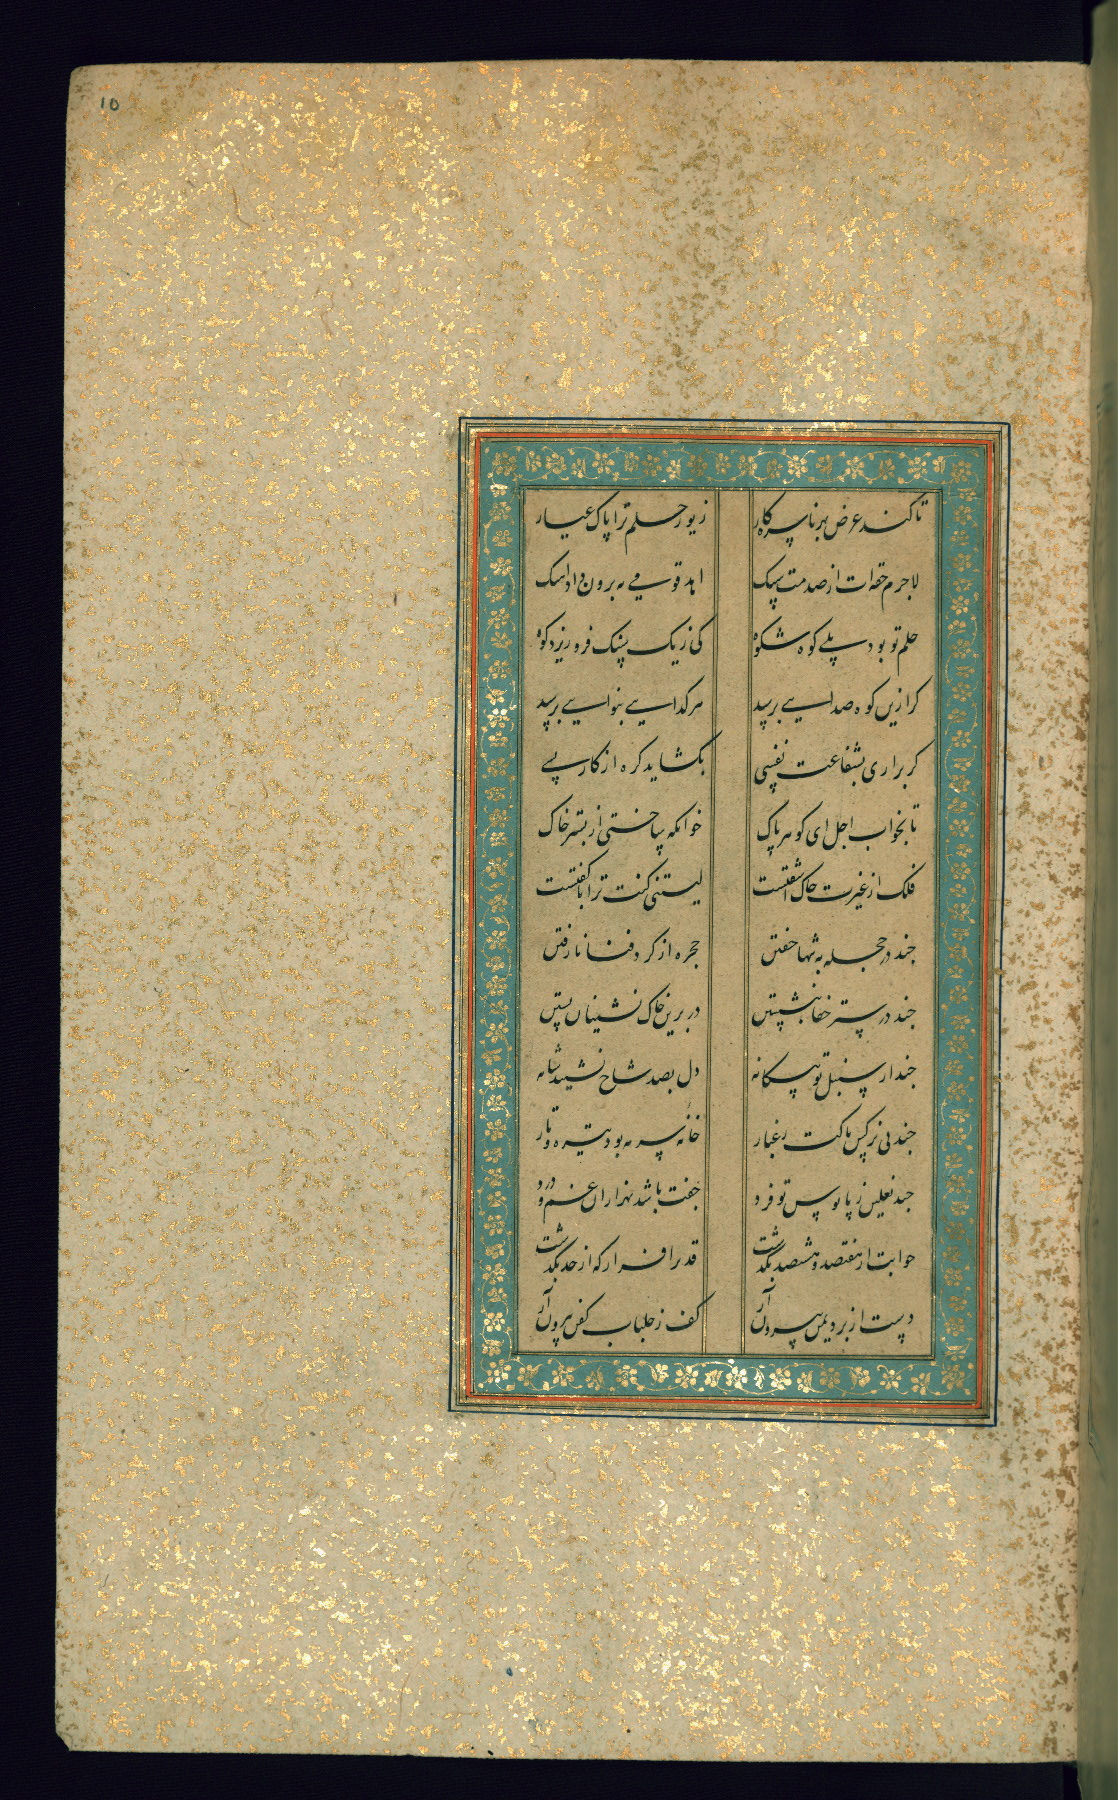 10
تا کند عرض بر نا سره کار
زیور حلم ترا پاک عیار
لاجرم حقه ات از صدمت سنک
اهد قومی به برون داد اسک
حلم تو بود بلی کوه شکوه
کی ز یک سنک فرو ریزد کوه
کر ازین کوه صدایی برسد
هر کدایی بنوایی برسد
کر براری بشفاعت نفسی
بکشاید کره از کار بسی
تا بخواب اجل ای کوهر پاک
خوابکه ساختی از بستر خاک
فلک از غیرت خاک اشفتست
لیتنی کنت ترابا کفتست
جند در حجله به تنها خفتن
حجره از کرد فنا نا رفتن
جند در ستر خفا بنشستن
در برین خاک نشینان بستن
جند از سنبل تو بیکانه
دل بصد شاخ نشیند شانه
جند بی نرکس پاکت ز غبار
خانه سرمه بود تیره و تار
جند نعلین ز پابوس تو فرد
جفت باشد بهزاران غم و درد
خوابت از هفتصد و هشتصد بکذشت
قد برافراز که از حد بکذشت
دست از برد یمن بیرون آر
کف ز جلباب کفن بیرون آر